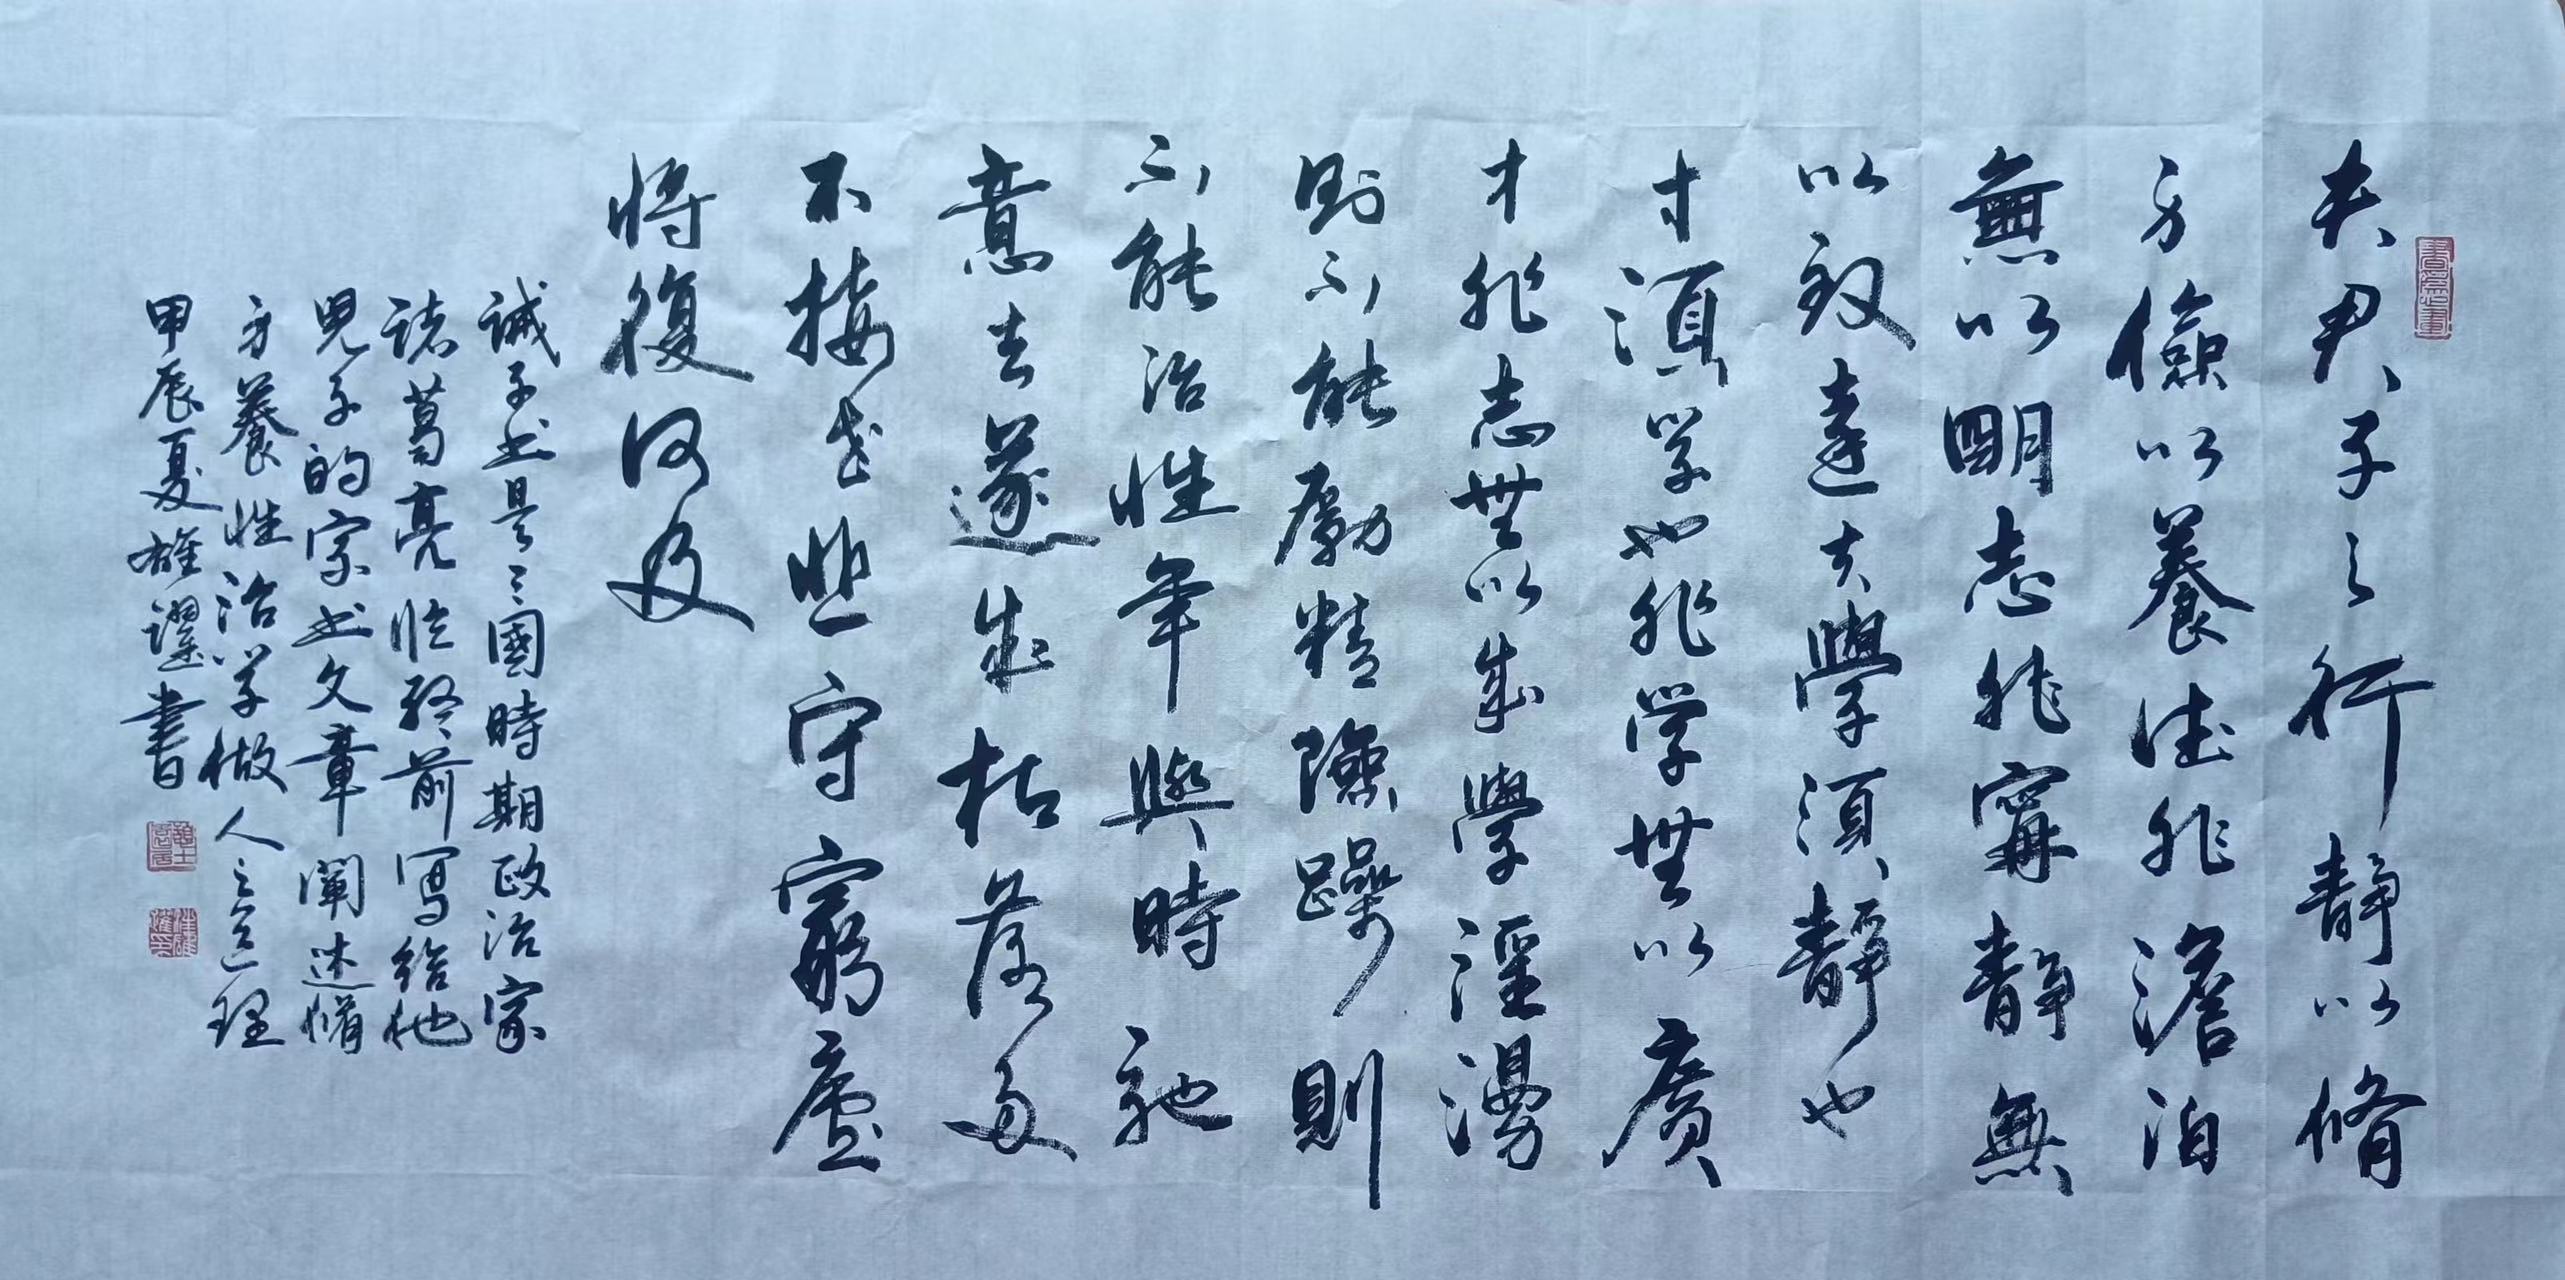 夫君子之行静以脩
身儉以養德非澹泊
無以明志非寧静無
以致遠夫學須静也
才須学也非学無以廣
才非志無以成學淫漫
則不能勵精險躁則
不能治性年與時馳
意去遂成枯落多
不接世悲守窮廬
將復何及
誡子书是三國時期政治家
諸葛亮临终前写给他
児子的家书文章闡述脩
身養性治学做人之道理
甲辰夏雄躍書